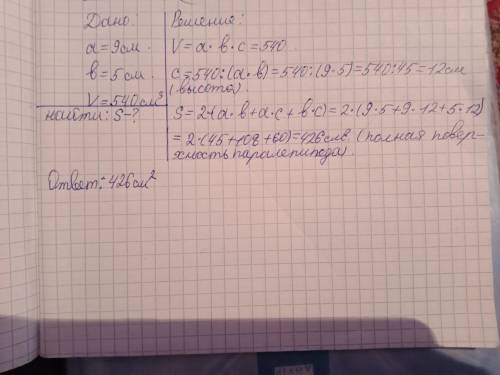 Дано.
a=9см.
в=5см.
V=540см³
найти: S-?
Решение:
V=a·в·c=540.
c=540:(a·в)=540:(9·5)=540:45=12см
(высота).
S=2·(a·в+a·c+в·c)=2·(9·5+9·12+5·12)
=2·(45+108+60)=426см² (полная повер-
хность паралепипода).
Ответ: 426см²